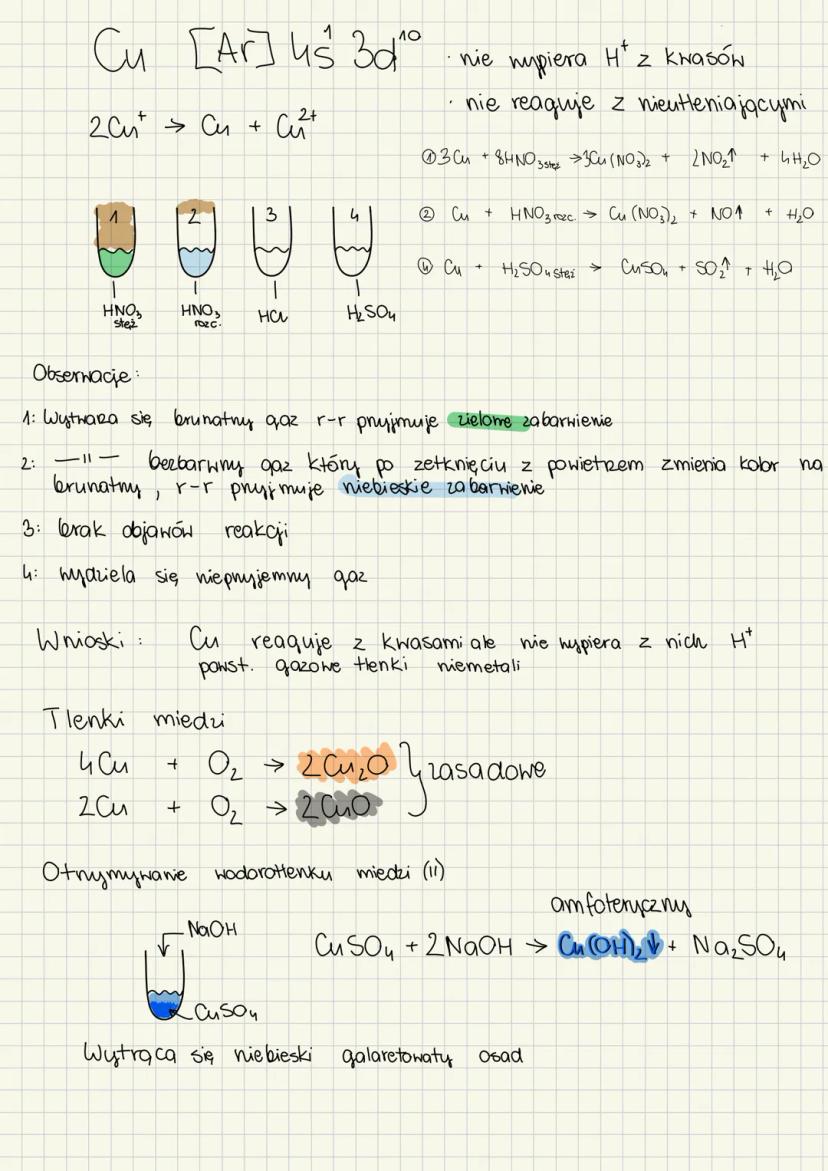 Cu [Ar] 4s¹ 3d¹⁰
· nie wypiera H⁺ z kwasów
· nie reaguje z nieutleniającymi
2Cu⁺ → Cu + Cu²⁺
① 3Cu + 8HNO₃ stęż → 3Cu(NO₃)₂ + 2NO₂↑ + 4H₂O
② Cu + HNO₃ rozc. → Cu(NO₃)₂ + NO↑ + H₂O
④ Cu + H₂SO₄ stęż → CuSO₄ + SO₂↑ + H₂O
1 2 3 4
HNO₃ stęż HNO₃ rozc. HCl H₂SO₄
Obserwacje:
1: Wytwarza się brunatny gaz r-r przyjmuje zielone zabarwienie
2: —11— bezbarwny gaz który po zetknięciu z powietrzem zmienia kolor na
brunatny, r-r przyjmuje niebieskie zabarwienie
3: brak objawów reakcji
4: wydziela się nieprzyjemny gaz
Wnioski: Cu reaguje z kwasami ale nie wypiera z nich H⁺
powst. gazowe tlenki niemetali
Tlenki miedzi
4Cu + O₂ → 2Cu₂O } zasadowe
2Cu + O₂ → 2CuO
Otrzymywanie wodorotlenku miedzi (II)
amfoteryczny
NaOH
CuSO₄ + 2NaOH → Cu(OH)₂↓ + Na₂SO₄
CuSO₄
Wytrąca się niebieski galaretowaty osad